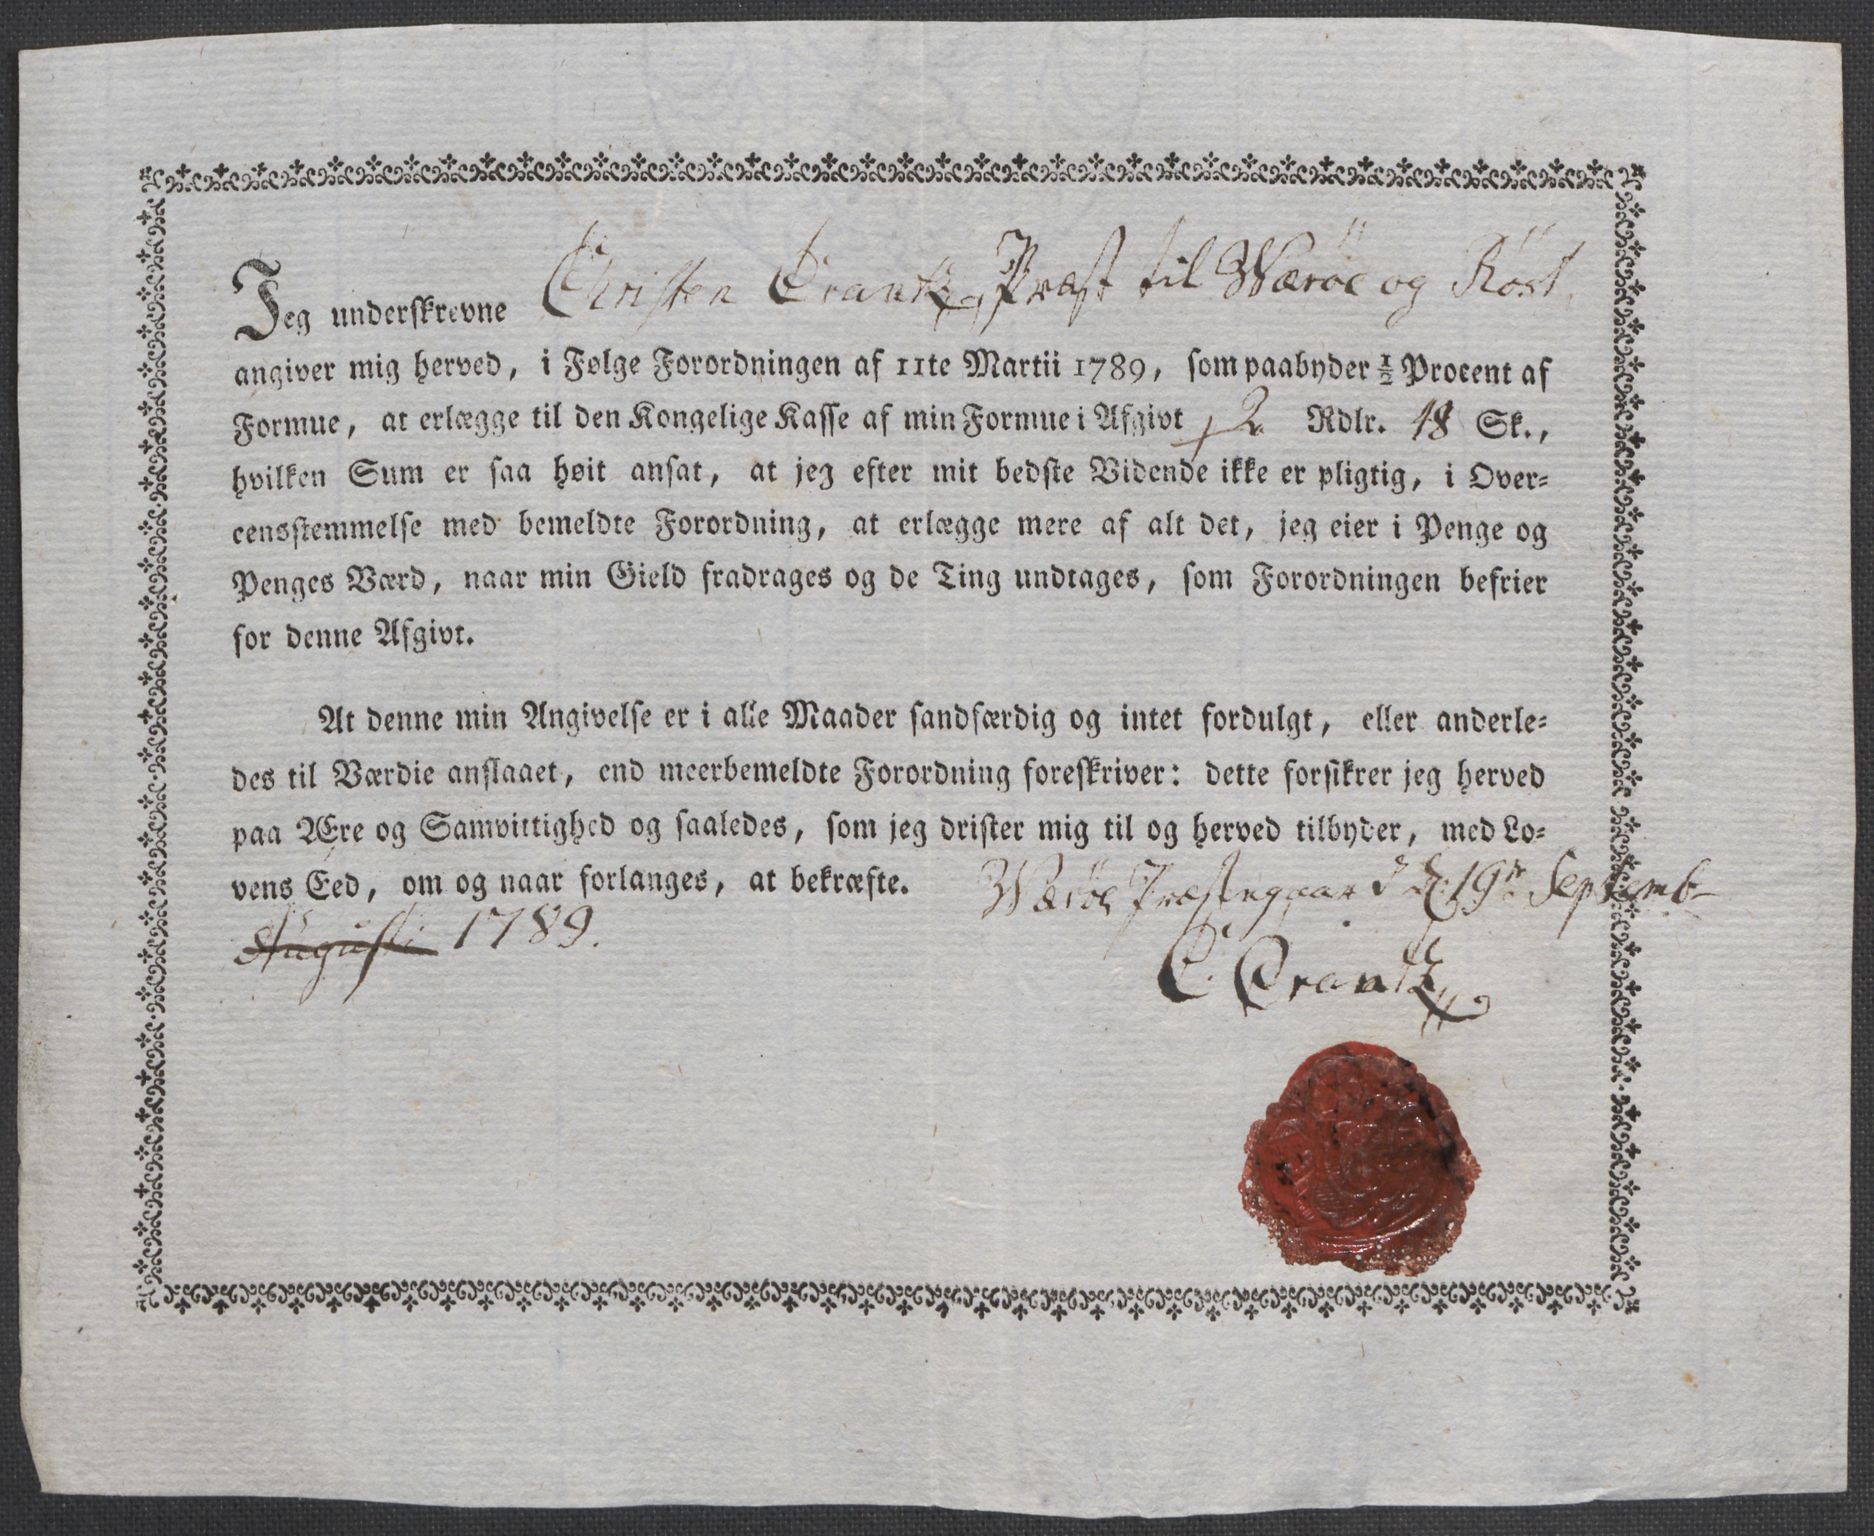 Jeg underskrevne Christen Crantz, Præst til Værøe og Röst
angiver mig herved, i Følge Forordningen af 11te Martii 1789, som paabyder ½ Procent af
Formue, at erlægge til den Kongelige Kasse af min Formue i Afgivt 2 Rdlr. 48 Sk.,
hvilken Sum er saa høit ansat, at jeg efter mit bedste Vidende ikke er pligtig, i Over-
eensstemmelse med bemeldte Forordning, at erlægge mere af alt det, jeg eier i Penge og
Penges Værd, naar min Gield fradrages og de Ting undtages, som Forordningen befrier
for denne Afgivt.
At denne min Angivelse er i alle Maader sandfærdig og intet fordulgt, eller anderle-
des til Værdie anslaaet, end meerbemeldte Forordning foreskriver: dette forsikrer jeg herved
paa Ære og Samvittighed og saaledes, som jeg drister mig til og herved tilbyder, med Lo-
vens Eed, om og naar forlanges, at bekræfte. Wærøe Præstegaard d. 19de Septemb-
Augusti 1789.
C. Crantz